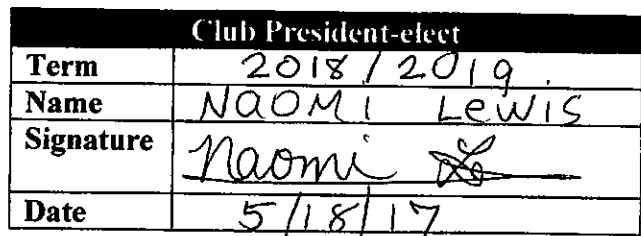 Club President-elect
Term 2018/2019
Name NAOMI LEWIS
Signature Naomi
Date 5/18/17